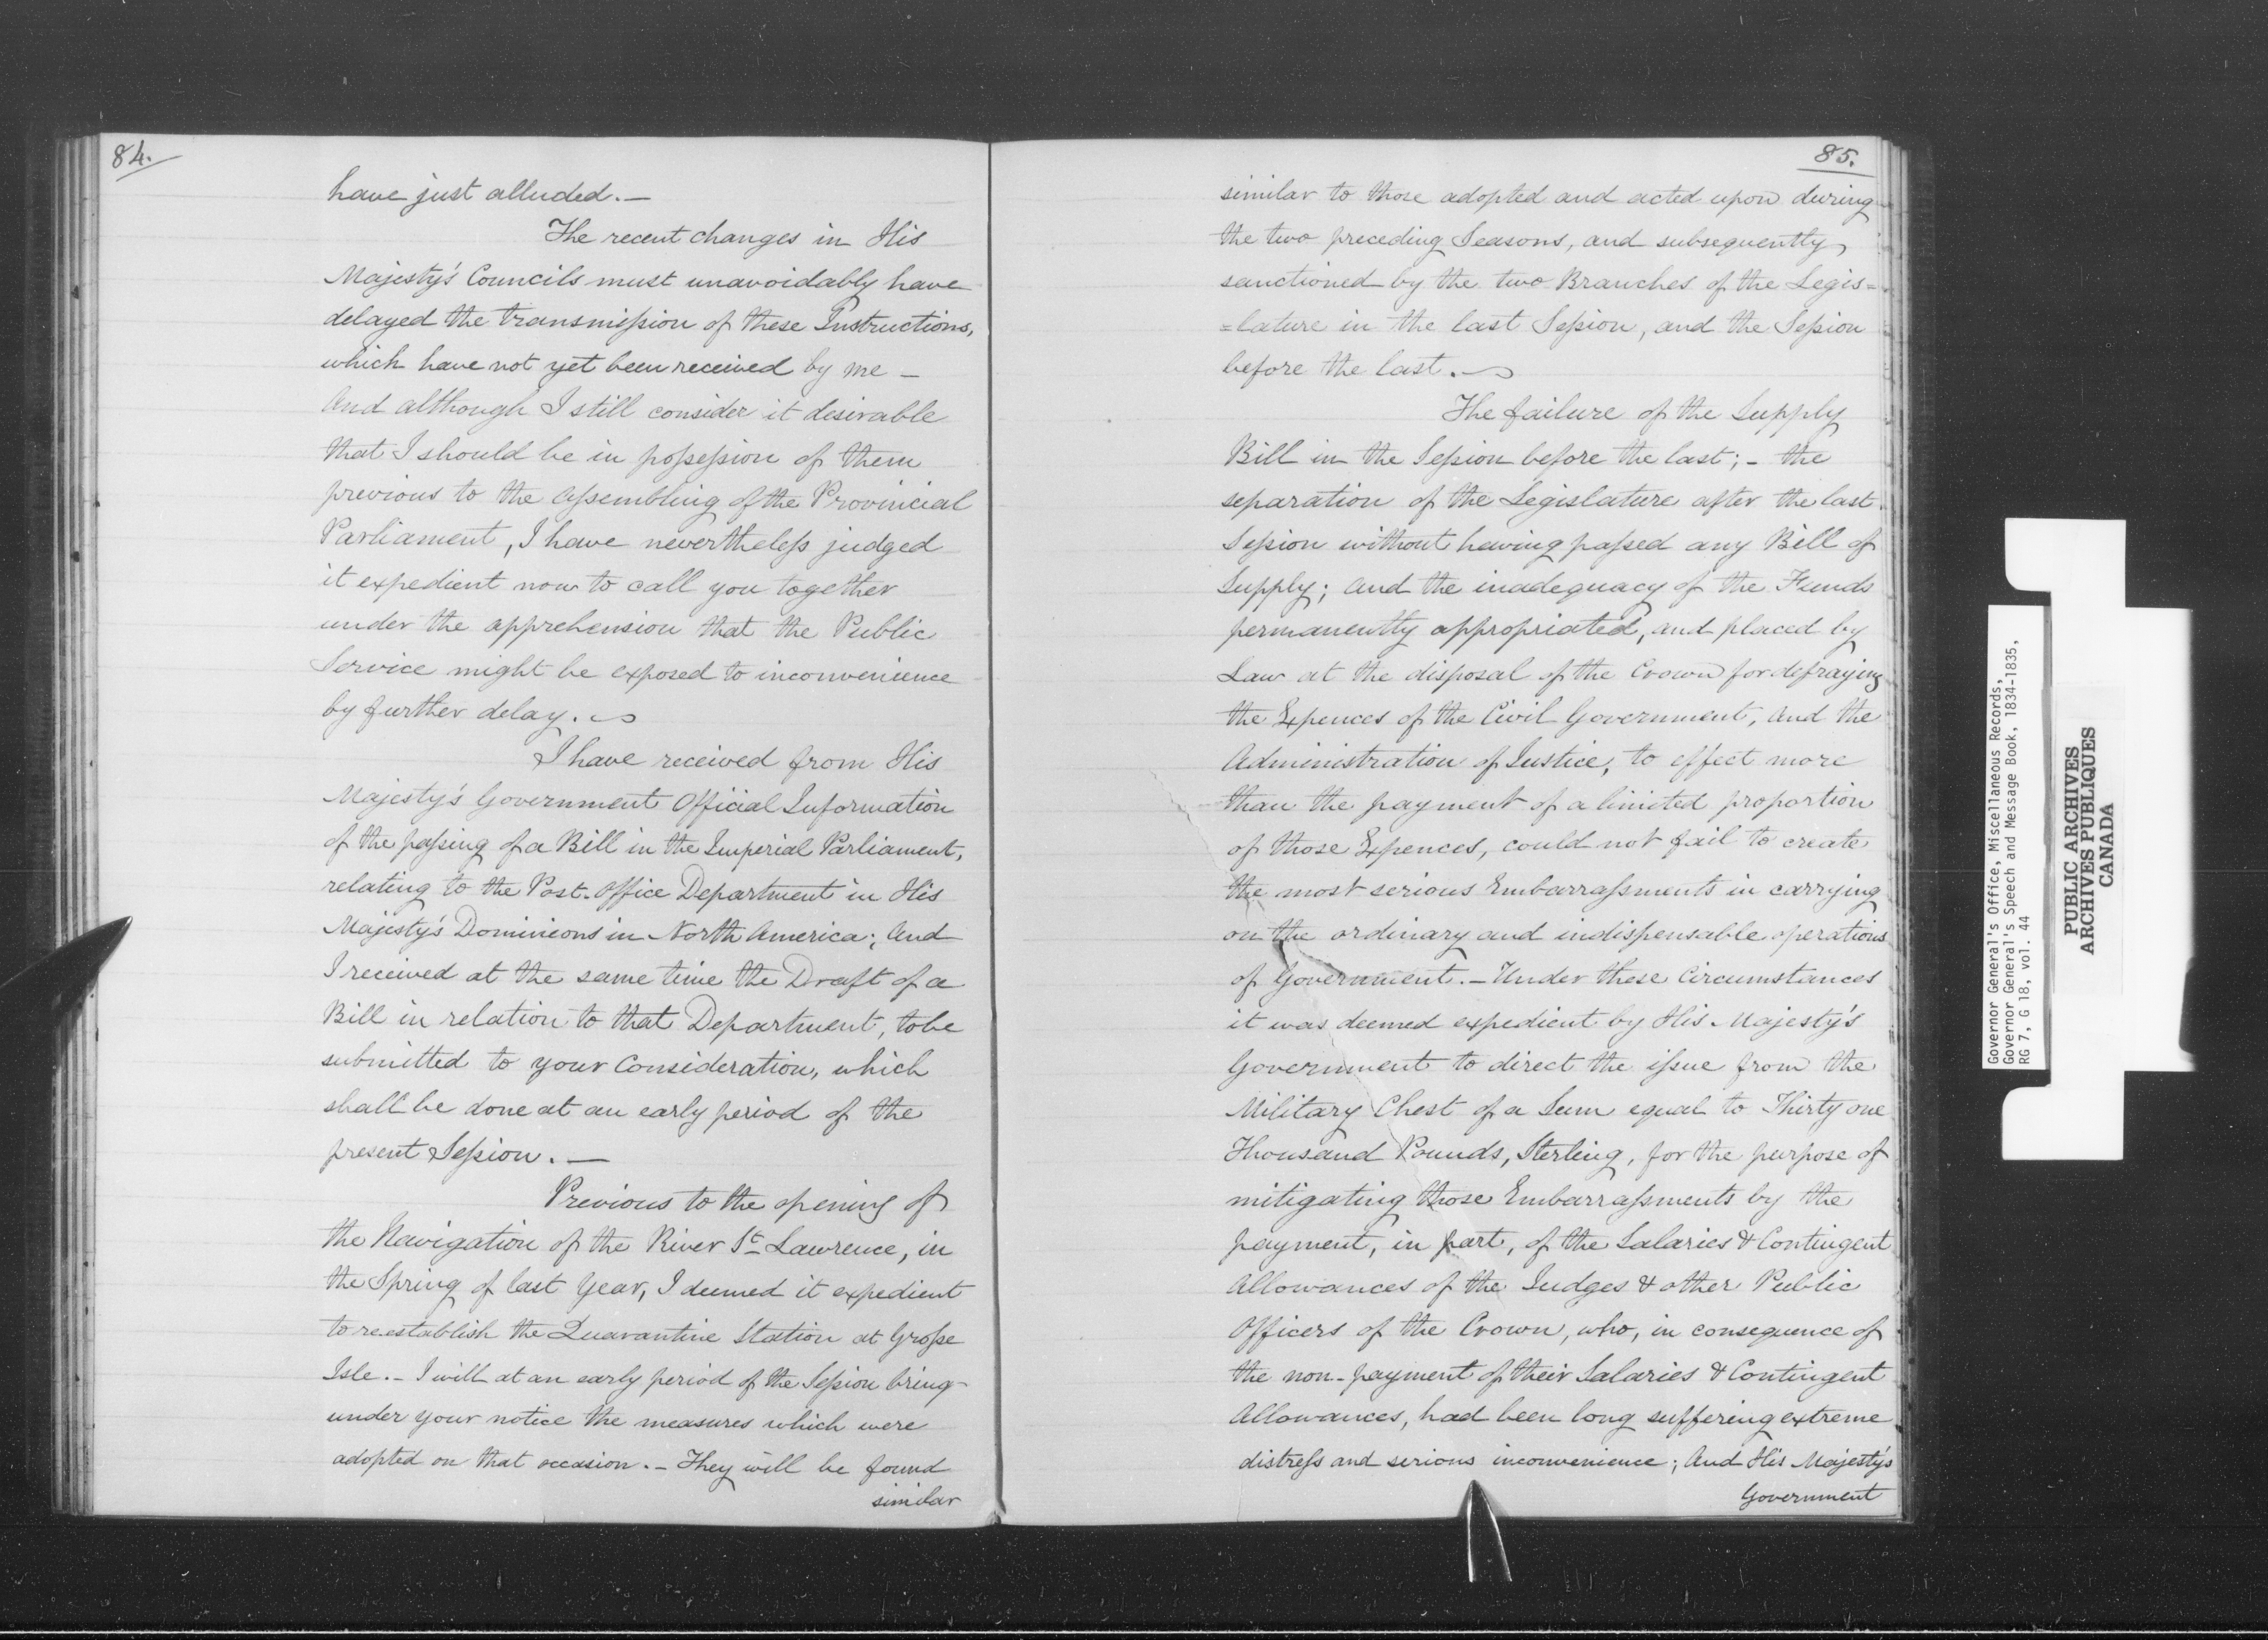 84.
have just alluded. —
The recent changes in His
Majesty's Councils must unavoidably have
delayed the transmission of these Instructions,
which have not yet been received by me —
And although I still consider it desirable
that I should be in possession of them
previous to the assembling of the Provincial
Parliament, I have nevertheless judged
it expedient now to call you together
under the apprehension that the Public
Service might be exposed to inconvenience
by further delay.
I have received from His
Majesty's Government Official Information
of the passing of a Bill in the Imperial Parliament,
relating to the Post-Office Department in His
Majesty's Dominions in North America; And
I received at the same time the Draft of a
Bill in relation to that Department, to be
submitted to your Consideration, which
shall be done at an early period of the
present Session. —
Previous to the opening of
the Navigation of the River St Lawrence, in
the Spring of last Year, I deemed it expedient
to reestablish the Quarantine Station at Grosse
Isle. — I will at an early period of the Session bring
under your notice the measures which were
adopted on that occasion. — They will be found
similar
85.
similar to those adopted and acted upon during
the two preceding Seasons, and subsequently
sanctioned by the two Branches of the Legis=
=lature in the last Session, and the Session
before the last.
The failure of the Supply
Bill in the Session before the last; — the
separation of the Legislature after the last
Session without having passed any Bill of
Supply; and the inadequacy of the Funds
permanently appropriated, and placed by
Law at the disposal of the Crown for defraying
the Expences of the Civil Government, and the
Administration of Justice, to effect more
than the payment of a limited proportion
of those Expences, could not fail to create
the most serious Embarrassments in carrying
on the ordinary and indispensable operations
of Government. — Under these Circumstances
it was deemed expedient by His Majesty's
Government to direct the issue from the
Military Chest of a Sum equal to Thirty one
Thousand Pounds, Sterling, for the purpose of
mitigating those Embarrassments by the
payment, in part, of the Salaries & Contingent
Allowances of the Judges & other Public
Officers of the Crown, who, in consequence of
the non-payment of their Salaries & Contingent
Allowances, had been long suffering extreme
distress and serious inconvenience; And His Majesty's
Government
Governor General's Office, Miscellaneous Records,
Governor General's Speech and Message Book, 1834-1835,
RG 7, G 18, vol. 44
PUBLIC ARCHIVES
ARCHIVES PUBLIQUES
CANADA